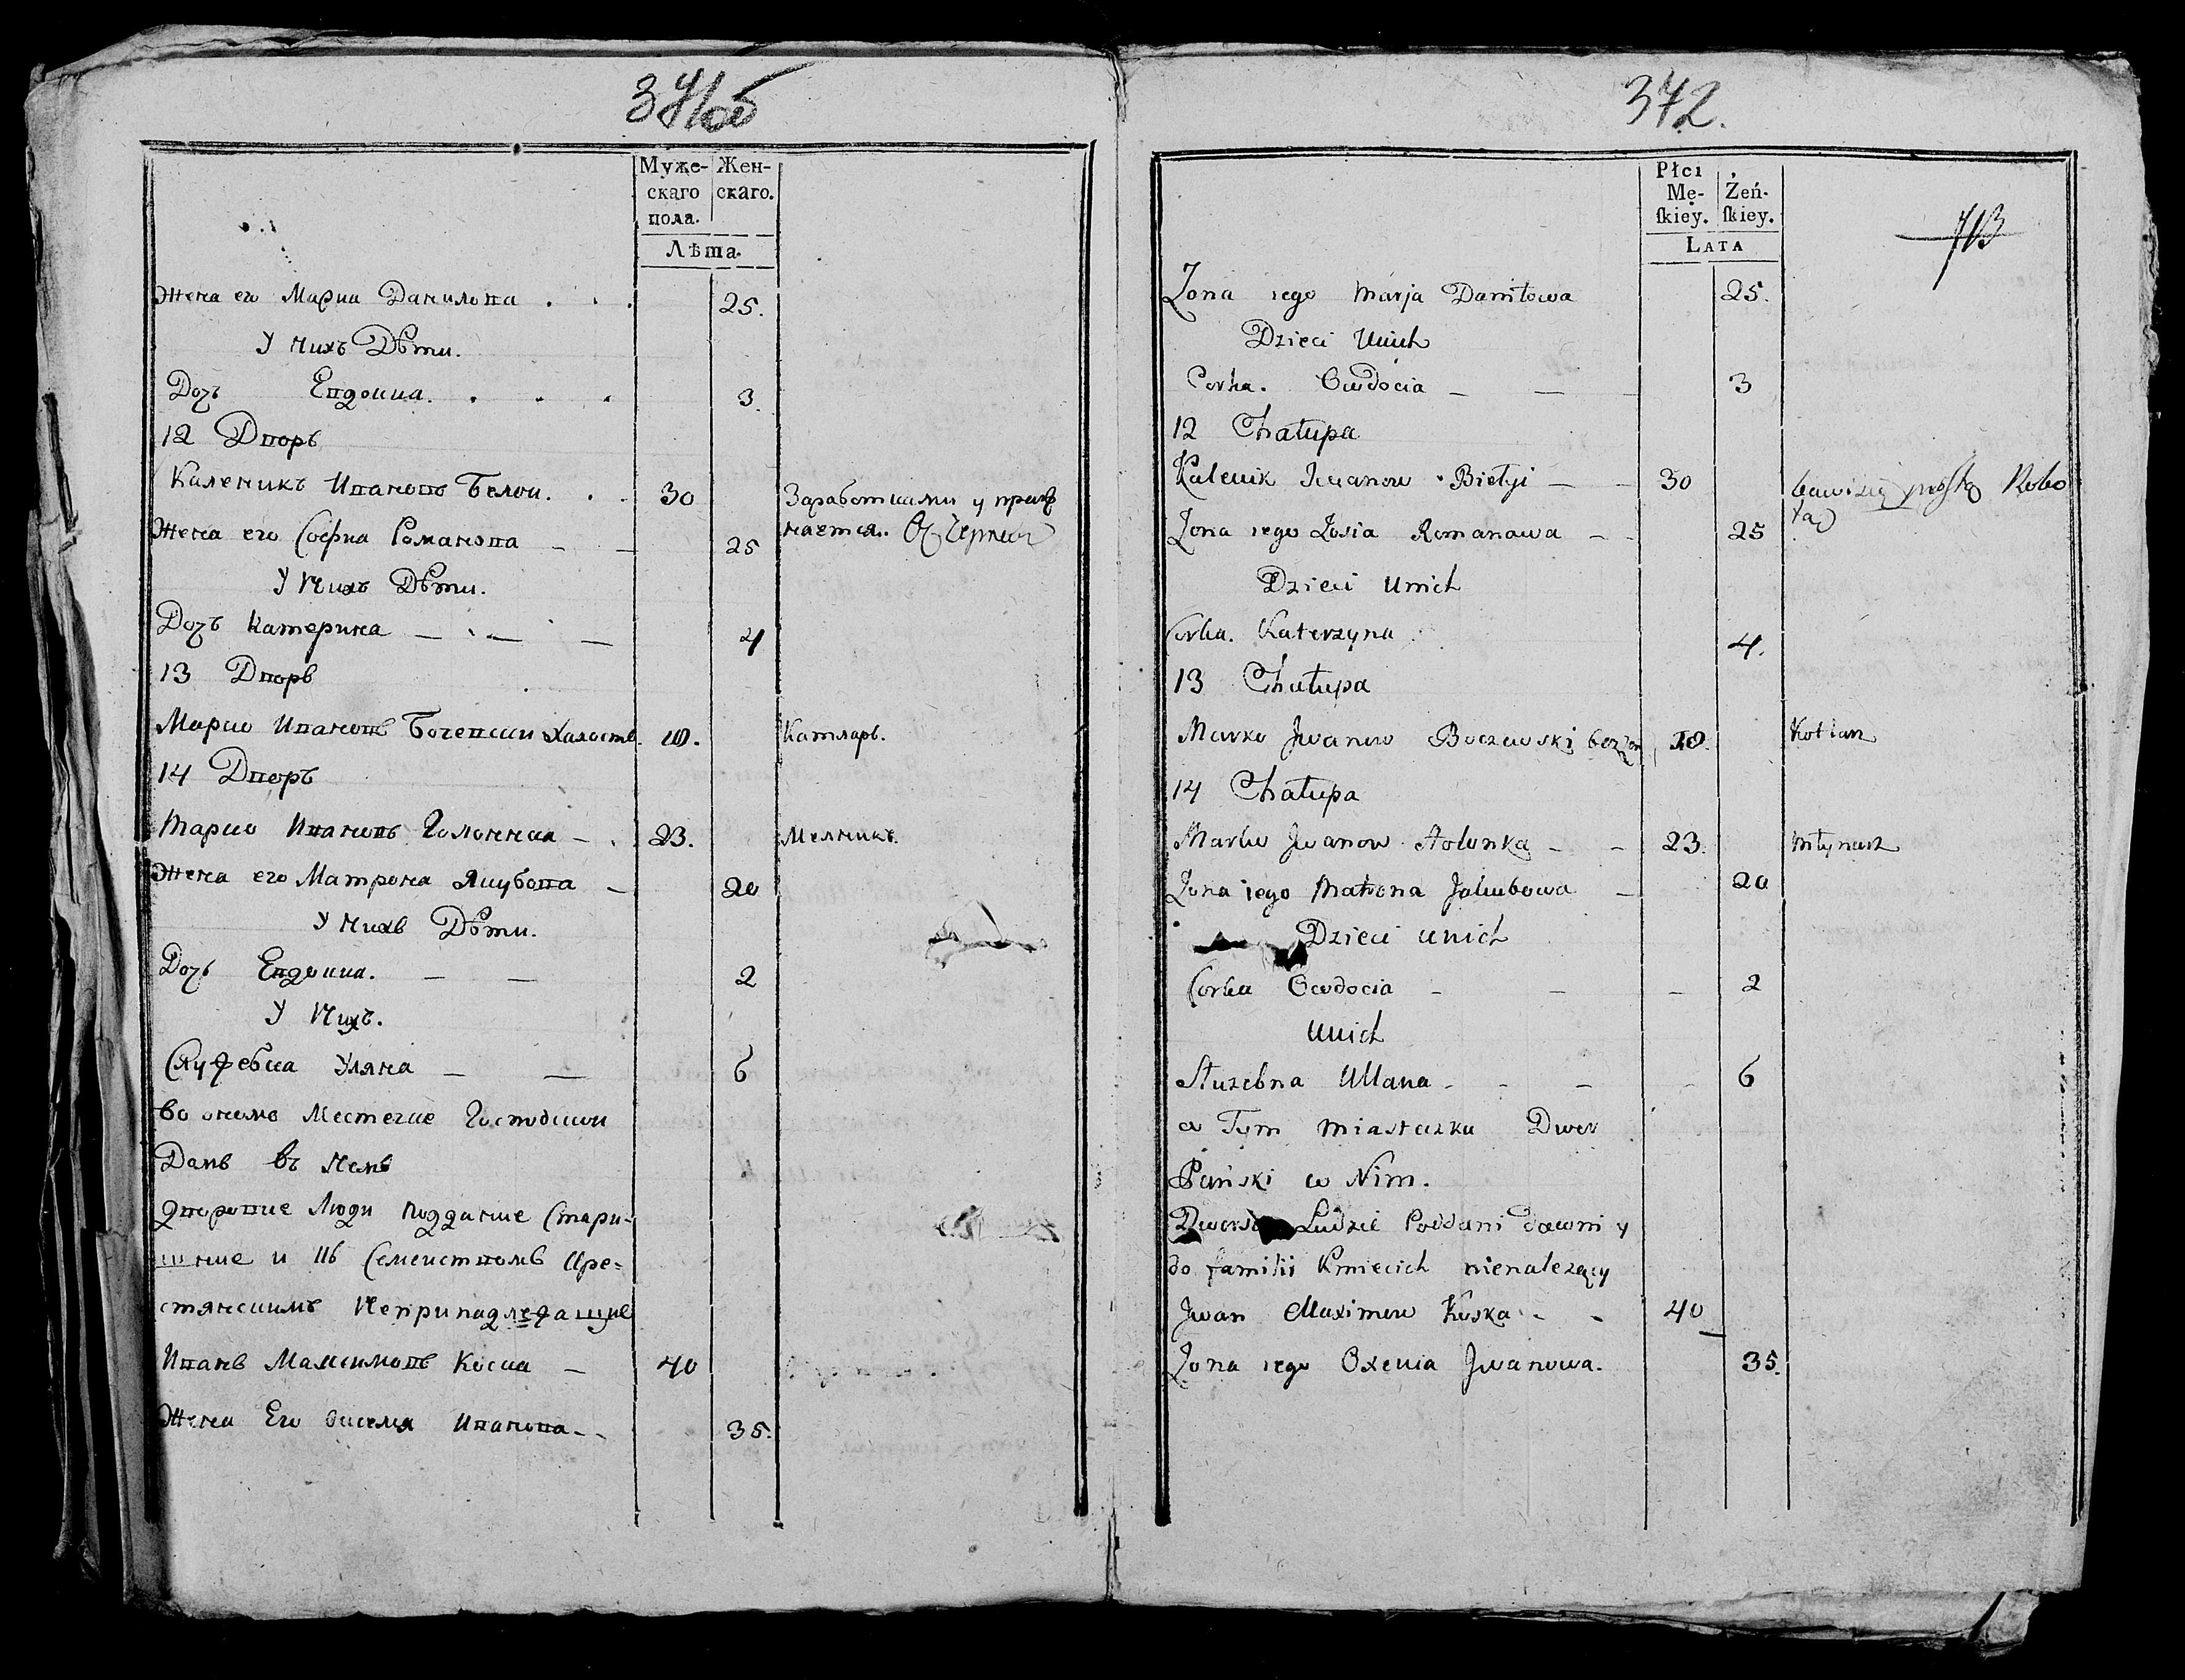 371об
Муже- Жен-
скаго скаго.
пола.
Лѣта.
Жена его Мариа Данилова . . . 25.
У нихъ Дѣти.
Дочъ Евдокиа. . . . 3.
12 Дворъ
Каленикъ Ивановъ Белои. . . 30 Заработками упраж
Жена его Софиа Романова — — 25 няется.
У Нихъ Дѣти.
Дочъ Катерина — — — 4
13 Дворъ
Марко Ивановъ Бочевски Халостъ. Катларъ.
14 Дворъ
Марко Ивановъ Голонка — . 23. Мелникъ.
Жена его Матрона Якубова — 20
У Нихъ Дѣти.
Дочъ Евдокиа. — — 2
У Нихъ.
Служебка Уляна — — 6
Во ономъ Местечке Господскои
Дамъ въ Немъ
Дворовие Люди поддание Стари-
нние и въ Семеиствомъ Кре=
стянскимъ Непринадлежащие
Иванъ Максимовъ Коска — 40
Жена Его Оксеня Иванова - - 35.
372.
Płci
Mę- Żeń-
ſkiey. ſkiey.
LATA
713
Zona iego Marja Daniłowa 25.
Dzieci Unich
Corka. Ewdocia — — 3
12 Chałupa
Kalenik Iwanow Biełyi — — 30 bawi się prostą Robo
Zona iego Zosia Romanawa — - 25 tą
Dzieci Unich
Corka. Katerzyna 4.
13 Chałupa
Marko Jwanow Boczewski bezżen Kotlarz
14 Chałupa
Marko Jwanow Holonka — — 23. Młynarz
Zona iego Matrona Jakubowa — 20
Dzieci unich
Corka Ewdocia — — — 2
Unich
Służebna Ullana - - — - 6
w Tym Miasteczku Dwor
Pański w Nim.
Ludzie Poddani dawni y
do familii Kmiecich nienalezący
Jwan Maximow Koska - - 40
Zona iego Oxenia Jwanowa. 35.